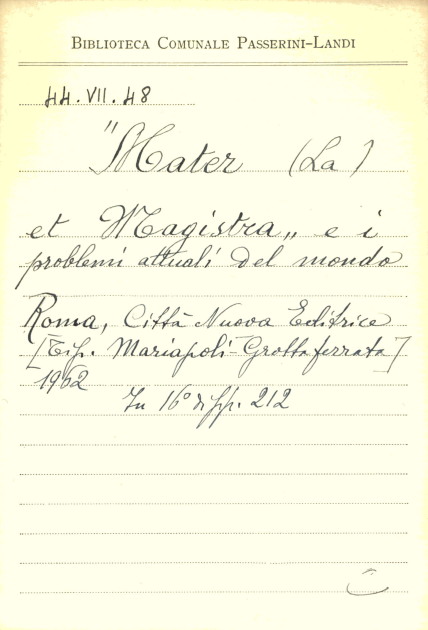 BIBLIOTECA COMUNALE PASSERINI-LANDI
44.VII.48
"Mater (La)
et Magistra„ e i
problemi attuali del mondo
Roma, Città Nuova Editrice
[Tip. Mariapoli-Grottaferrata]
1962
In 16° di pp. 212